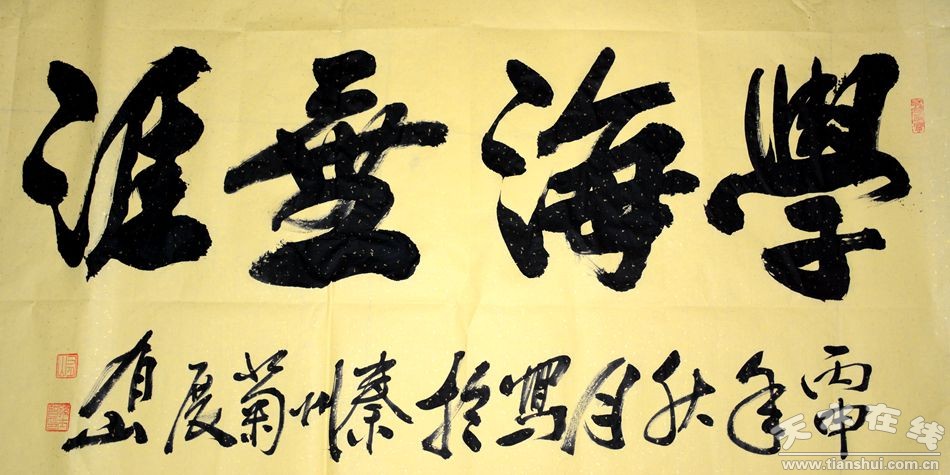 學海無涯
丙申年秋月寫於秦州菊展 有山
天水在线
www.tianshui.com.cn